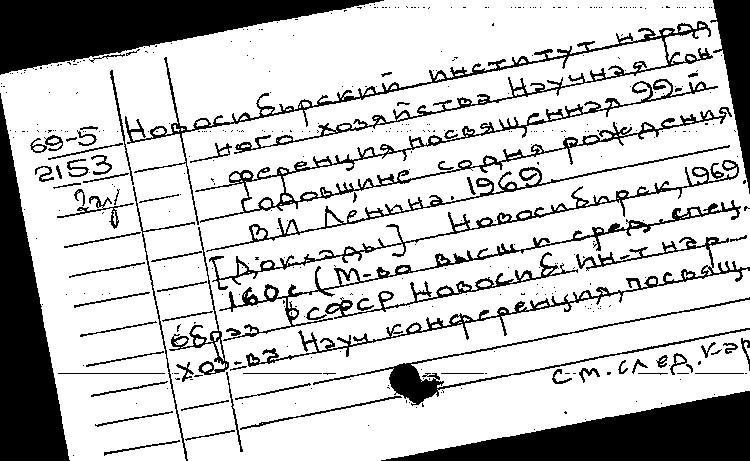 69-5
2153
2эу
Новосибирский институт народ-
ного хозяйства. Научная кон-
ференция, посвященная 99-й
годовщине со дня рождения
В.И. Ленина. 1969.
[Доклады]. Новосибирск, 1969.
160 с. (М-во высш. и сред. спец.
образ. РСФСР Новосиб. ин-т нар.
хоз-ва. Науч конференция, посвящ.
см. след. кар